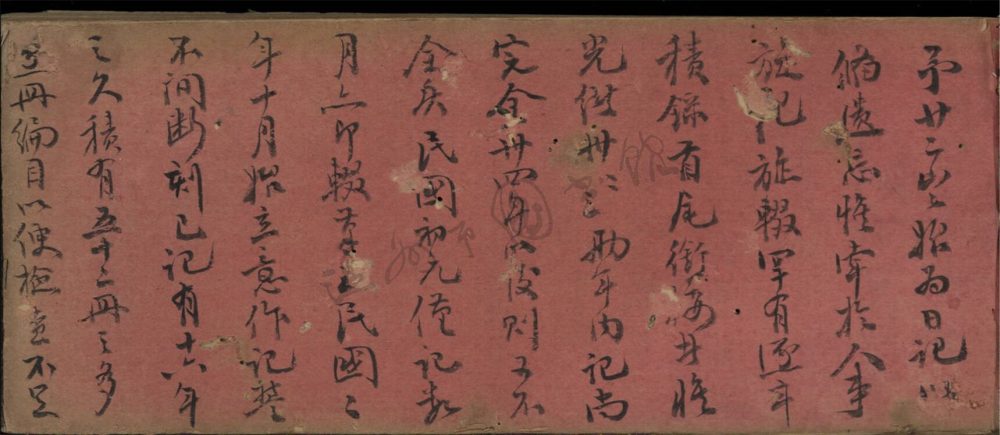 予廿二歲始為日記以
備遺忘惟牽於人事
旋記旋輟罕有逐年
積錄首尾銜接者惟
光緒卅 年內記尚
完全卅四年以後則又不
全矣民國初元僅記數
月六即輟 民國二
年十月始立意作記
不間斷刻已記有十六年
之久積有五十二冊之多
並冊編目以便檢查不足